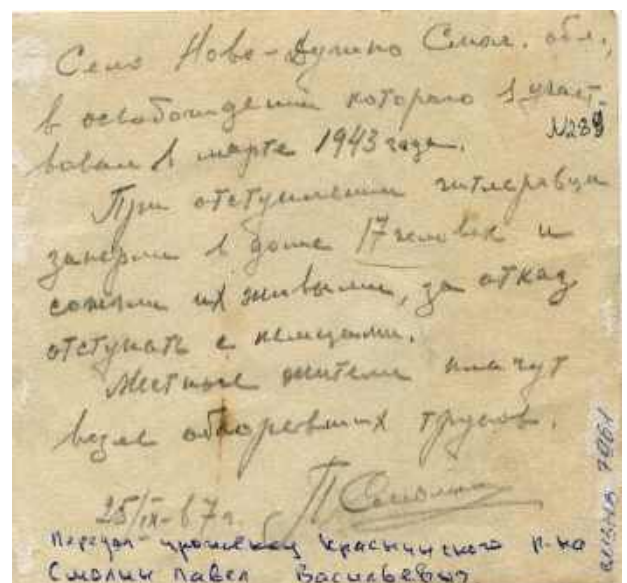 Село Ново-Дугино Смол. обл.,
в освобождении которого я участ-
N289
вовал в марте 1943 года.
При отступлении гитлеровцы
заперли в доме 17 человек и
сожгли их живыми, за отказ
отступать с немцами.
Местные жители плачут
возле обгоревших трупов.
25/IX-67г. П Смолин
Передал Краснинского р-на
Смолин Павел Васильевич
7961